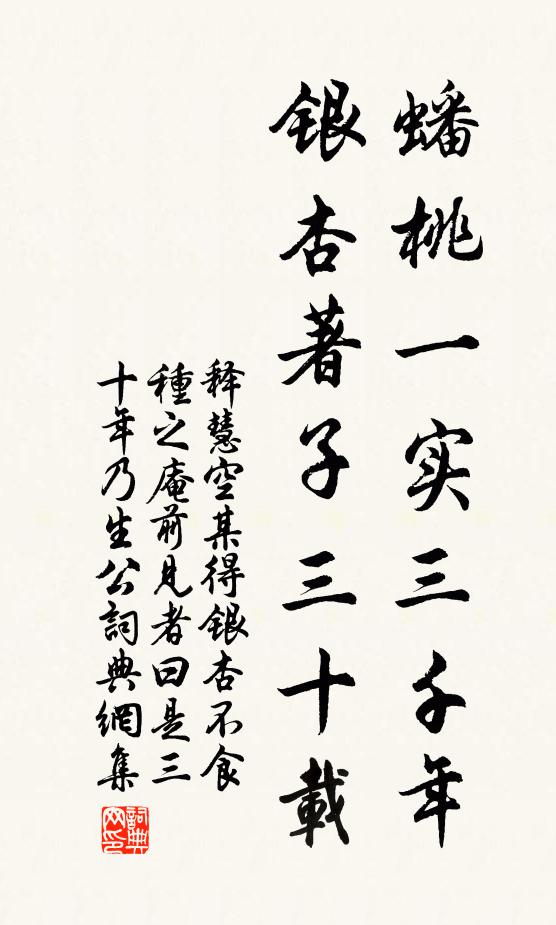 蟠桃一实三千年
銀杏著子三十載
释慧空某得銀杏不食
種之庵前見者曰是三
十年乃生公詞典網集
詞典网印